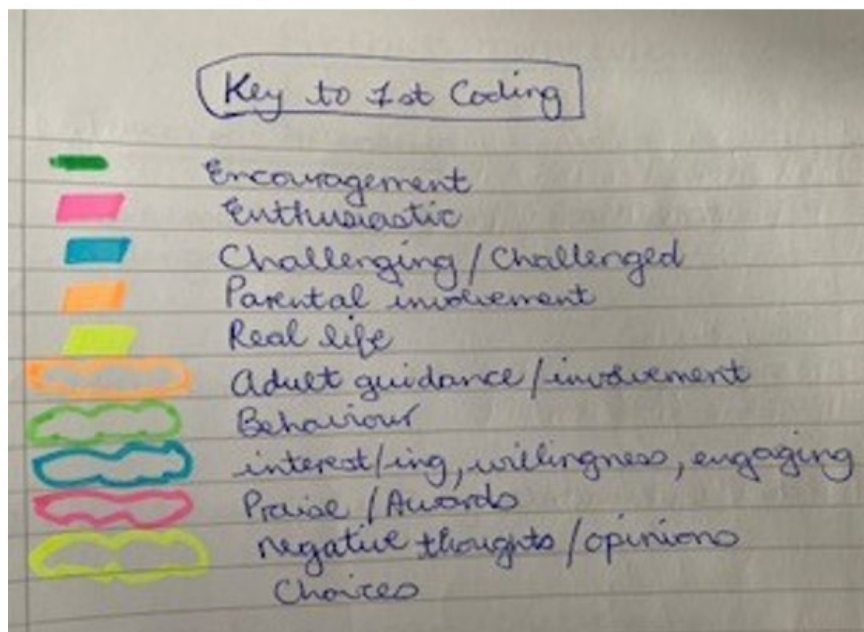 Key to 1st Coding
Encouragement
Enthusiastic
Challenging / Challenged
Parental involvement
Real life
Adult guidance / involvement
Behaviour
interest/ing, willingness, engaging
Praise / Awards
negative thoughts / opinions
Choices